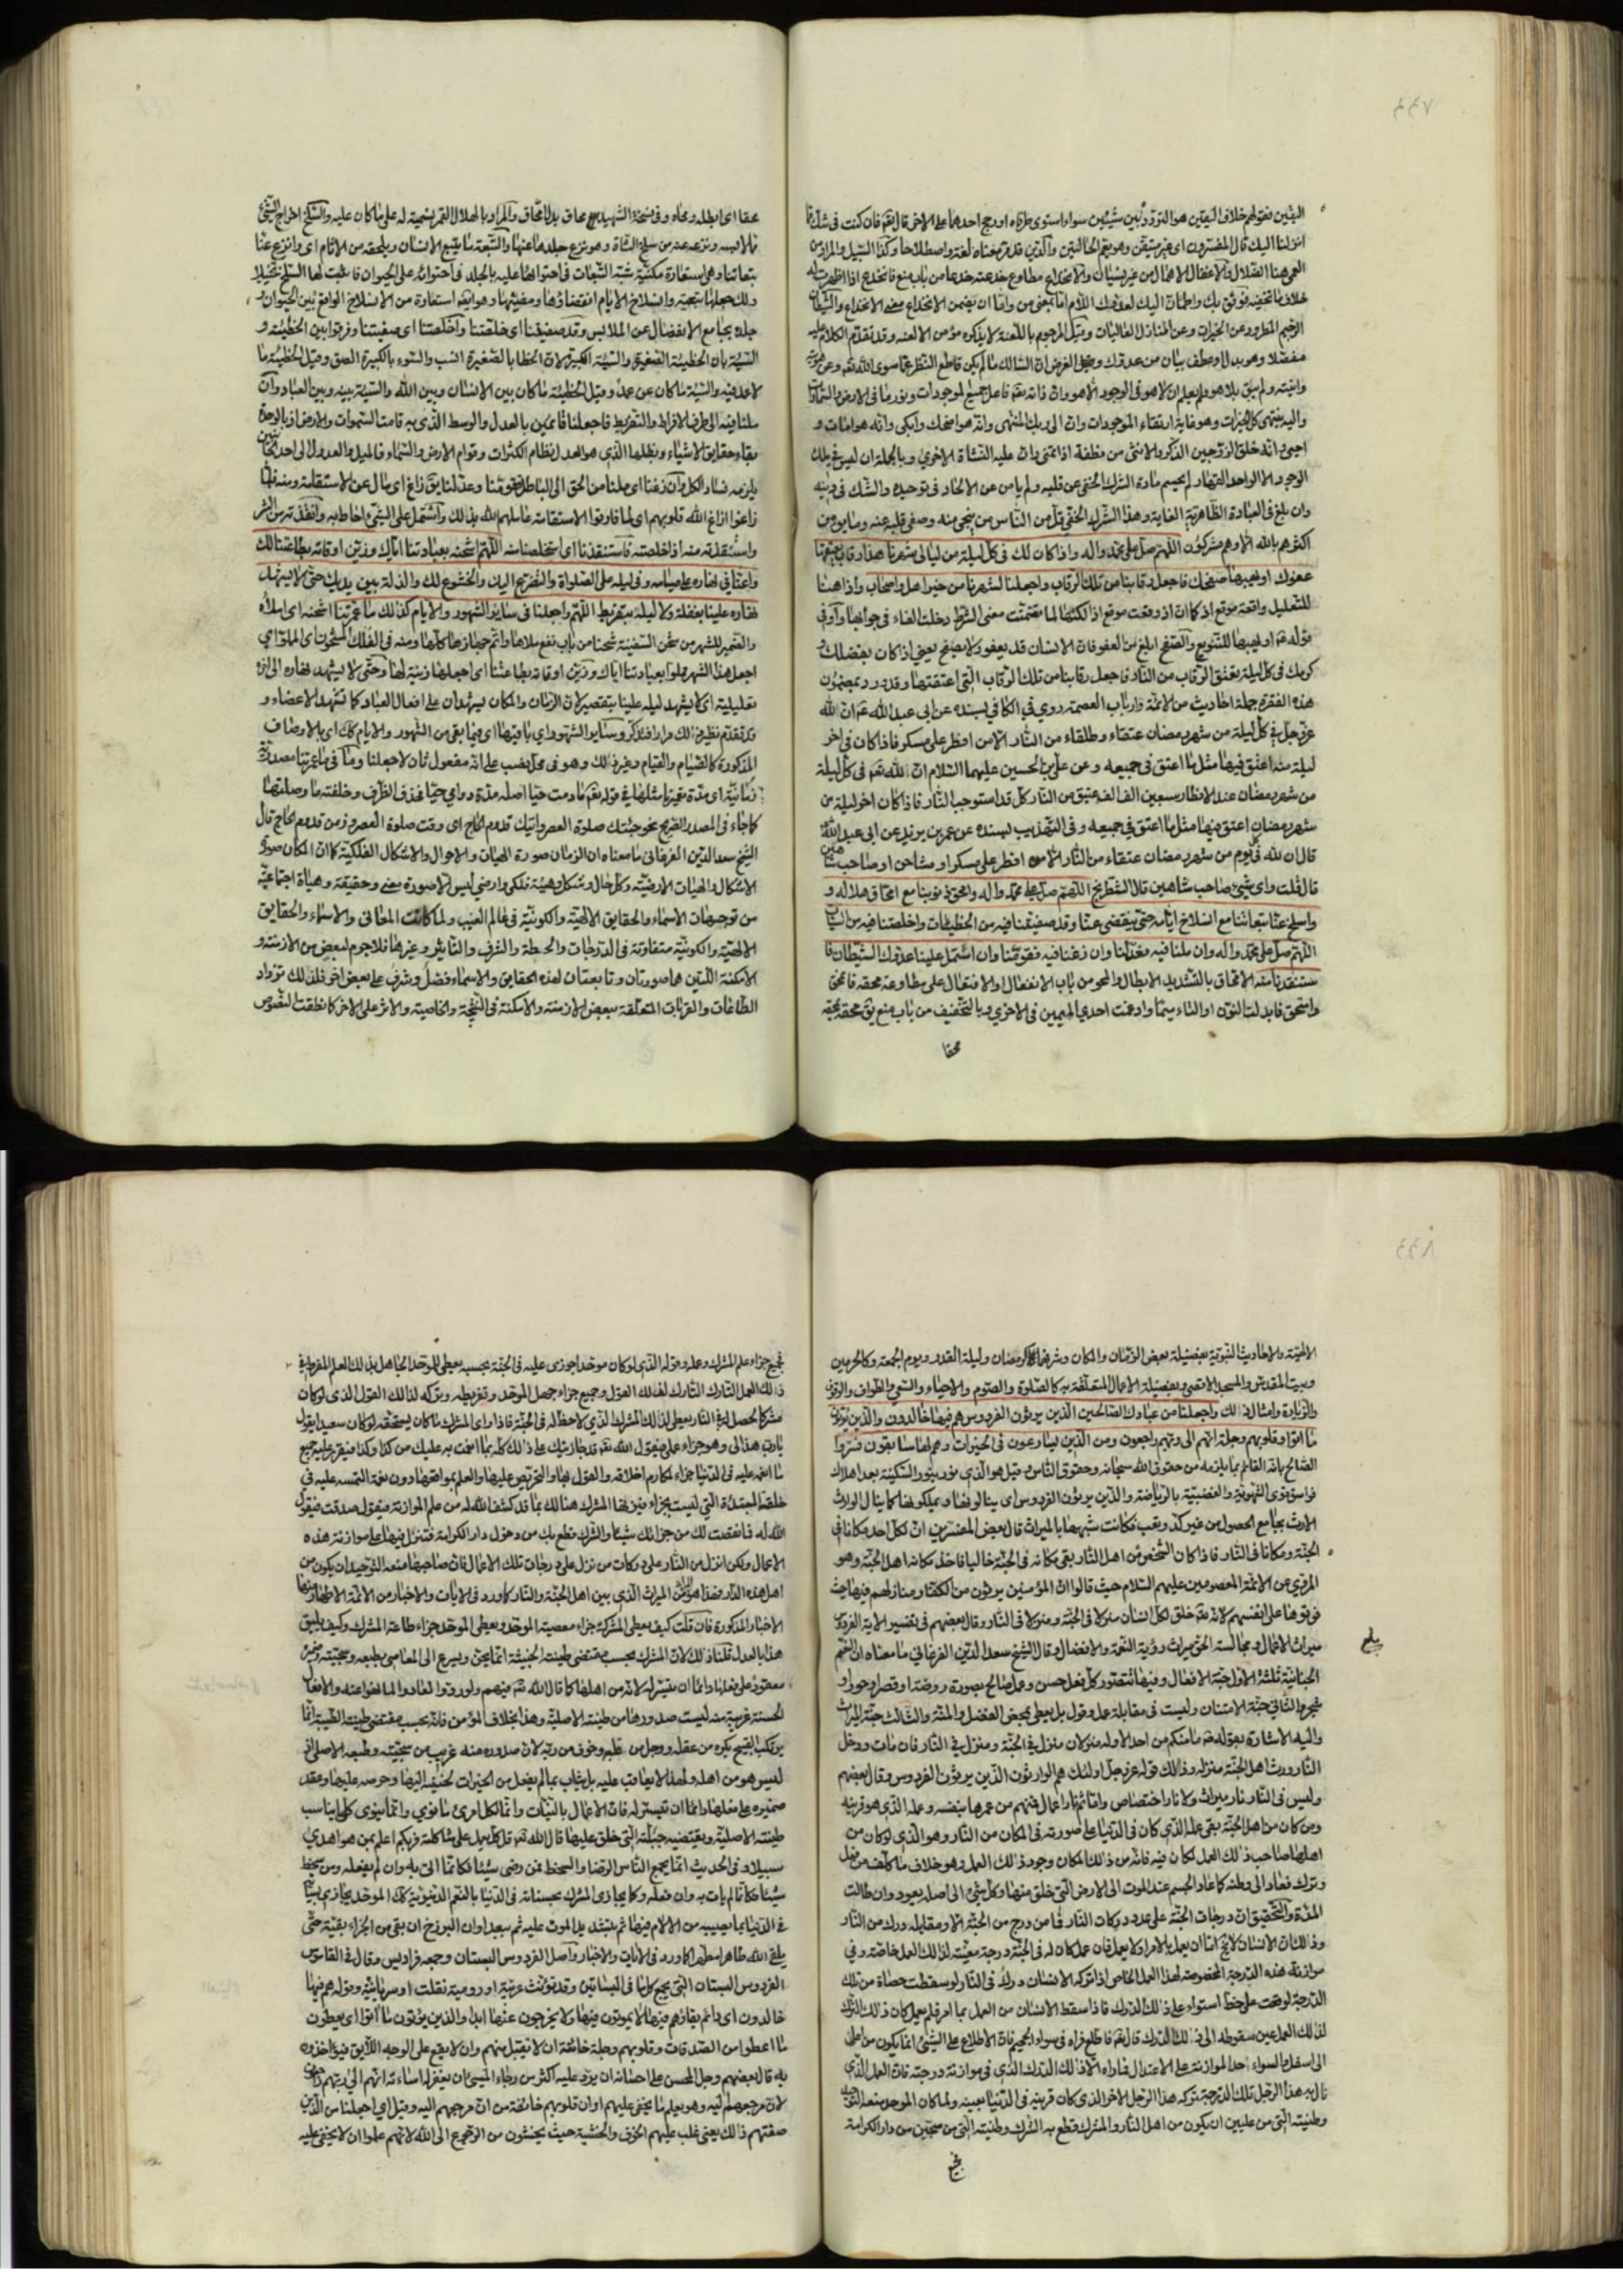 اليقين نعولهم خلاف اليقين هو التردد بين شيئين سواء استوى طرفاه او رجح احدهما على الاخر قال تعه فان كنت في شك مما
انزلنا اليك قال المفسرون اى غير متيقن وهو يعم الحالتين
العمى هنا الضلال والاغفال الاهمال من غير نسيان والانخداع مطاوع خدعته خدعا من باب منع فانخدع اذا اظهرت له
خلاف ما تخفيه فوثق بك واطمأن اليك
الرجيم المطرود عن الخيرات وعن المنازل العاليات وقيل المرجوم باللعنة لا يذكره مؤمن الا لعنه وقد تقدم الكلام عليه
مفصلا وهو بدل او عطف بيان من عدوك
واليه ينتهى كل الخيرات وهو غاية ارتقاء الموجودات وان الى ربك المنتهى وانه هو اضحك وابكى وانه هو امات و
احيى وانه خلق الزوجين الذكر والانثى من نطفة اذا تمنى وان عليه النشأة الاخرى وبالجملة ان ليس في ملك
الوجود الا الواحد القهار لم يحسم مادة الشرك الخفى عن قلبه ولم يامن عن الالحاد فى توحيده والشك فى دينه
وان بلغ فى العبادة الظاهرية الغاية وهذا الشرك الخفى قل من الناس من ينجى منه وصفى قلبه عنه وما يؤمن
اكثرهم بالله الا وهم مشركون اللهم صل على محمد واله واذا كان لك فى كل ليلة من ليالى شهرنا هذا رقاب يعتقها
عفوك او يهبها صفحك فاجعل رقابنا من تلك الرقاب واجعلنا لشهرنا من خير اهل واصحاب واذا هنا
للتعليل واقعة موقع اذ كما ان اذ وقعت موقع اذا لكنها لما تضمنت معنى الشرط دخلت الفاء فى جوابها واو فى
قوله ع او يهبها للتنويع والصفح ابلغ من العفو فان الانسان قد يعفو ولا يصفح يعنى اذا كان بفضلك و
كرمك فى كل ليلة يعتق الرقاب من النار فاجعل رقابنا من تلك الرقاب التى اعتقتها وقد ورد بمضمون
هذه الفقرة جملة احاديث من الائمة وارباب العصمة روى فى الكافى بسنده عن ابى عبد الله ع م ان لله
عز وجل فى كل ليلة من شهر رمضان عتقاء وطلقاء من النار الا من افطر على مسكر فاذا كان فى اخر
ليلة منه اعتق فيها مثل ما اعتق فى جميعه وعن على بن الحسين عليهما السلام ان لله تعه فى كل ليلة
من شهر رمضان عند الافطار سبعين الف الف عتيق من النار كل قد استوجب النار فاذا كان اخر ليلة من
شهر رمضان اعتق فيها مثل ما اعتق فى جميعه وفى التهذيب بسنده عن عمر بن يزيد عن ابى عبد الله
قال ان لله فى كل يوم من شهر رمضان عتقاء من النار الا من افطر على مسكر او مشاحن او صاحب شاهين
قال قلت واى شىء صاحب شاهين قال الشطرنج اللهم صل على محمد واله وامحق ذنوبنا مع امحاق هلاله و
واسلخ عنا تبعاتنا مع انسلاخ ايامه حتى ينقضى عنا وقد صفيتنا فيه من الخطيئات واخلصتنا فيه من السيئات
اللهم صل على محمد واله وان ملنا فيه فعدلنا وان زغنا فيه فقومنا وان اشتمل علينا عدوك الشيطان فا
ستنقذنا منه الامحاق بالتشديد الابطال والمحو من باب الانفعال والافتعال على مطاوعة محقه فامحق
وامتحق فابدلت النون او التاء ميما وادغمت احدى الميمين فى الاخرى وبالتخفيف من باب منع يق محقه يمحقه
محقا
محقا اى ابطله ومحاه وفى نسخة الشهيد محاق بدل امحاق والمراد بالهلال القمر تسمية له على ما كان عليه والسلخ اخراج الشىء
مما لابسه ونزعه عنه من سلخ الشاة وهو نزع جلدها عنها والتبعة ما يتبع الانسان ويلحقه من الاثام اى وانزع عنا
تبعاتنا وهى استعارة مكنية شبه التبعات فى احتوائها عليه بالجلد فى احتوائه على الحيوان فاثبت لها السلخ تخييلا
جلده بجامع الانفصال عن الملابس وقد صفيتنا اى خلصتنا واخلصتنا اى صفيتنا وفرقوا بين الخطيئة و
السيئة بان الخطيئة الصغيرة والسيئة الكبيرة لان الخطا بالصغيرة انسب والسوء بالكبيرة الصق وقيل الخطيئة ما
لا عمد فيه والسيئة ما كان عن عمد وقيل الخطيئة ما كان بين الانسان وبين الله والسيئة بينه وبين العباد وان
ملنا فيه الى طرفى الافراط والتفريط فاجعلنا قائمين بالعدل والوسط الذى به قامت السموات والارض
بقاء حقايق الاشياء ونظامها الذى هو العدل نظام الكثرات وقوام الارض والسماء
يلزمه فساد الكل وان زغنا اى ملنا من الحق الى الباطل فقومنا وعدلنا يق زاغ اى مال عن الاستقامة ومنه فلما
زاغوا ازاغ الله قلوبهم اى لما فارقوا الاستقامة عاملهم الله بذلك واشتمل على الشىء احاط به وانقذته من الشر
واستنقذته منه اذا خلصته فاستنقذنا اى استخلصنا منه اللهم اشحنه بعبادتنا اياك وزين اوقاته بطاعتنا لك
واعنا فى نهاره على صيامه وفى ليله على الصلواة والتضرع اليك والخشوع لك والذلة بين يديك حتى لا يشهد
نهاره علينا بغفلة ولا ليله بتفريط اللهم واجعلنا فى ساير الشهور والايام كذلك ما عمرتنا اشحنه اى املاه
والضمير للشهر من شحن السفينة شحنا من باب نفع ملاها واتم جهازها كلها ومنه فى الفلك المشحون اى المملو اى
اجعل هذا الشهر مملوا بعبادتنا اياك وزين اوقاته بطاعتنا اى اجعلها زينة لها وحتى لا يشهد نهاره الى اخره
تعليلية اى كى لا يشهد ليله علينا بتقصير لان الزمان والمكان يشهدان على افعال العباد كما تشهد الاعضاء و
قد تقدم نظير ذلك مرارا فتذكر وساير الشهور اى باقيها اى فيما بقى من الشهور والايام كك اى بالاوصاف
المذكورة كالصيام والقيام وغير ذلك وهو فى محل نصب على انه مفعول ثان لاجعلنا وما فى ما عمرتنا مصدرية
زمانية اى مدة تعميرنا مثلها فى قوله تعه ما دمت حيا اصله مدة دوامى حيا فحذف الظرف وخلفته ما وصلتها
كما جاء فى المصدر الصريح نحو جئتك صلوة العصر واتيك قدوم الحاج اى وقت صلوة العصر وزمن قدوم الحاج قال
الشيخ سعد الدين الفرغانى ما معناه ان الزمان صورة الهيات والاحوال والاشكال الفلكية كما ان المكان صورة
الاشكال والهيات الارضية وكل حال وشكل وهيئة فلكى وارضى ليس الا صورة معنى وحقيقة وهيأة اجتماعية
من توجهات الاسماء والحقايق الالهية والكونية فى عالم الغيب ولما كانت المعانى والاسماء والحقايق
الالهية والكونية متفاوتة فى الدرجات والحيطة والشرف والتاثير وغيرها فلا جرم لبعض من الازمنة و
الامكنة اللتين هما صورتان وتابعتان لهذه الحقايق والاسماء فضل وشرف على بعض اخر فلذلك تزداد
الطاعات والقربات المتعلقة ببعض الازمنة والامكنة فى النتيجة والخاصية والاثر على الاخر كما نطقت النصوص
الالهية والاحاديث النبوية بفضيلة بعض الزمان والمكان وشرفهما كرمضان وليلة القدر ويوم الجمعة وكالحرمين
وبيت المقدس والمسجد الاقصى وبفضيلة الاعمال المتعلقة به كالصلوة والصوم والاحياء والسعى والطواف والوقوف
والزيارة وامثال ذلك واجعلنا من عبادك الصالحين الذين يرثون الفردوس هم فيها خالدون والذين يؤتون
ما اتوا وقلوبهم وجلة انهم الى ربهم راجعون ومن الذين يسارعون فى الخيرات وهم لها سابقون فسروا
الصالح بانه القائم بما يلزمه من حقوق الله سبحانه وحقوق الناس وقيل هو الذى نور بنور السكينة بعد اهلاك
فواسق قوى الشهوية والغضبية بالرياضة والذين يرثون الفردوس اى ينالونها ويملكونها كما ينال الوارث
الارث بجامع الحصول من غير كد وتعب فكانت شبهها بالميراث قال بعض المفسرين ان لكل احد مكانا فى
الجنة ومكانا فى النار فاذا كان الشخص من اهل النار بقى مكانه فى الجنة خاليا فاخذ مكانه اهل الجنة وهو
المروى عن الائمة المعصومين عليهم السلام حيث قالوا ان المؤمنين يرثون من الكفار منازلهم فيها حيث
فوتوها على انفسهم لانه تعه خلق لكل انسان منزلا فى الجنة ومنزلا فى النار وقال بعضهم فى تفسير الاية الفردوس
ميراث الاعمال ومجالسة الحق ميراث رؤية النعمة والافضال وقال الشيخ سعد الدين الفرغانى ما معناه ان النعم
الجنانية ثلثة الاول جنة الافعال وفيها تتصور كل فعل حسن وعمل صالح بصورة روضة او قصر او حور او
شجر والثانى جنة الامتنان وليست فى مقابلة عمل وقول بل يعطى بمحض الفضل والمنة والثالث جنة الميراث
واليه الاشارة بقوله ص ما منكم من احد الا وله منزلان منزل فى الجنة ومنزل فى النار فان مات ودخل
النار ورث اهل الجنة منزله وذلك قوله عز وجل اولئك هم الوارثون الذين يرثون الفردوس وقال بعضهم
وليس فى النار نار ميراث ولا نار اختصاص وانما ثم نار اعمال فمنهم من عمرها بنفسه وعمله الذى هو قرينه
ومن كان من اهل الجنة بقى عمله الذى كان فى الدنيا على صورته فى المكان من النار وهو الذى لو كان من
اهلها صاحب ذلك العمل لكان فيه فانه من ذلك المكان وجود ذلك العمل وهو خلاف ما كلف من فعل
وترك فعاد الى وطنه كما عاد الجسم عند الموت الى الارض التى خلق منها وكل شىء الى اصله يعود وان طالت
المدة والتحقيق ان درجات الجنة على عدد دركات النار فما من درج من الجنة الا ومقابله درك من النار
وذلك ان الانسان لا يخ اما ان يعمل بالامر او لا يعمل فان عمل كان له فى الجنة درجة معينة لذلك العمل خاصة وفى
موازنة هذه الدرجة المخصوصة لهذا العمل الخاص اذا تركه الانسان درك فى النار لو سقطت حصاة من تلك
الدرجة لوقعت على خط استواء على ذلك الدرك فاذا سقط الانسان من العمل بما امر فلم يعمل كان ذلك الترك
لذلك العمل عين سقوطه الى ذلك الدرك قال تعه فاطلع فراه فى سواء الجحيم فان الاطلاع على الشىء انما يكون من اعلى
الى اسفل والسواء احد الموازنة على الاعتدال فما راه الا فى ذلك الدرك الذى فى موازنة درجته فان العمل الذى
نال به هذا الرجل تلك الدرجة تركه هذا الرجل الاخر الذى كان قرينه فى الدنيا بعينه ولما كان الموحد منعه التوحيد
وطنيته التى من عليين ان يكون من اهل النار والمشرك قطع به الشرك وطنيته التى من سجين من دار الكرامة
جميع جزاء علم المشرك وعمله وقوله الذى لو كان موحدا جوزى عليه فى الجنة بحسبه يعطى للموحد الجاهل بذلك العلم المفرط فى
ذلك العمل التارك لذلك القول وجميع جزاء جهل الموحد وتفريطه وتركه لذلك القول الذى لو كان
مشركا لحصل له فى النار يعطى لذلك المشرك الذى لا حظ له فى الجنة فاذا راى المشرك ما كان يستحقه لو كان سعيدا يقول
ما انعم عليه فى الدنيا جزاء لمكارم اخلاقه
الله له فما نقصت لك من جزائك شيئا والشرك قطع بك من دخول دار الكرامة فتنزل فيها على موازنة هذه
الاعمال ولكن انزل من النار على دركات من نزل على درجات تلك الاعمال فان صاحبها منعه التوحيد ان يكون من
اهل هذه الدار فهذا هو من الميراث الذى بين اهل الجنة والنار كما ورد فى الايات والاخبار من الائمة الاطهار
الاخبار المذكورة فان قلت كيف يعطى المشرك جزاء معصية الموحد ويعطى الموحد جزاء طاعة المشرك وكيف يليق
هذا بالعدل قلنا ذلك لان المشرك بحسب مقتضى طينته الخبيثة انما يحن ويسرع الى المعاصى بطبعه وسجيته
الحسنة غريبة منه ليست صدورها من طينته الاصلية وهذا بخلاف المؤمن فانه بحسب مقتضى طينته الطيبة انما
يرتكب القبيح بكره من عقله ووجل من قلبه وخوف من ربه لان صدوره منه غريب من سجيته وطبعه الاصلى اذ
ليس هو من اهله ولهذا لا يعاقب عليه بل يثاب بما لم يفعل من الخيرات لحنينه اليها وحرصه عليها وعقد
ضميره على فعلها دائما ان تيسر له فان الاعمال بالنيات وانما لكل امرئ ما نوى وانما ينوى كل ما يناسب
طينته الاصلية ويقتضيه جبلته التى خلق عليها قال الله تعه قل كل يعمل على شاكلته فربكم اعلم بمن هو اهدى
سبيلا وفى الحديث انما يجمع الناس الرضا والسخط فمن رضى شيئا فكانما اتى به وان لم يفعله ومن سخط
شيئا فكانما لم يات به وان فعله وكما يجازى المشرك بحسناته فى الدنيا بالنعم الدنيوية كك الموحد يجازى بسيئاته
فى الدنيا بما يصيبه من الالام فيها ثم بتشديد الموت عليه ثم بعداوان البرزخ ان بقى من الجزاء بقية حتى
يلقى الله طاهرا مطهرا كما ورد فى الايات والاخبار واصل الفردوس البستان وجمعه فراديس وقال فى القاموس
الفردوس البستان التى يجمع كل ما فى البساتين وقد تؤنث عربية او رومية نقلت او سريانية وقوله هم فيها
خالدون اى دائم بقاؤهم فيها لا يموتون فيها ولا يخرجون عنها ابدا والذين يؤتون ما اتوا اى يعطون
ما اعطوا من الصدقات وقلوبهم وجلة خائفة ان لا تقبل منهم وان لا يقع على الوجه اللايق فيؤاخذوه
به قال بعضهم وجل المحسن على احسانه ان يرد عليه اكثر من رجاء المسىء ان يغفر له اساءته انهم الى ربهم راجعون
لان مرجعهم اليه وهو يعلم ما يخفى عليهم او ان قلوبهم خائفة من ان مرجعهم اليه وقيل اى اجعلنا من الذين
صفتهم ذلك يعنى غلب عليهم الخوف والخشية حيث يخشون من الرجوع الى الله لانهم علموا ان لا يخفى عليه